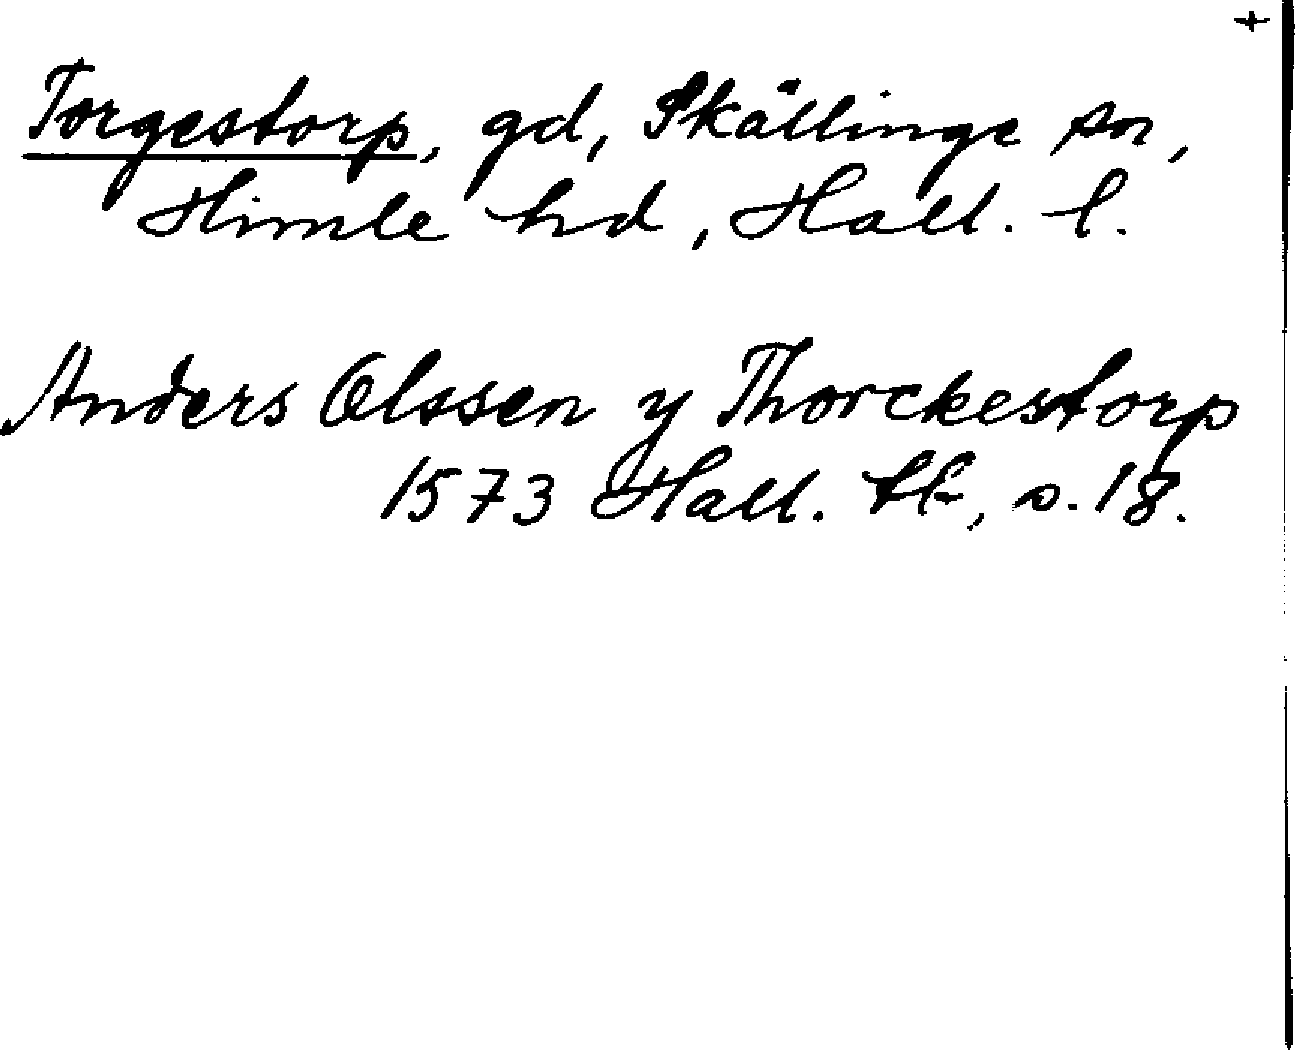 +
Torgestorp, gd, Skällinge sn,
Himle hd, Hall. l.
Anders Olssen y Thorckestorp
1573 Hall. tb, s. 18.